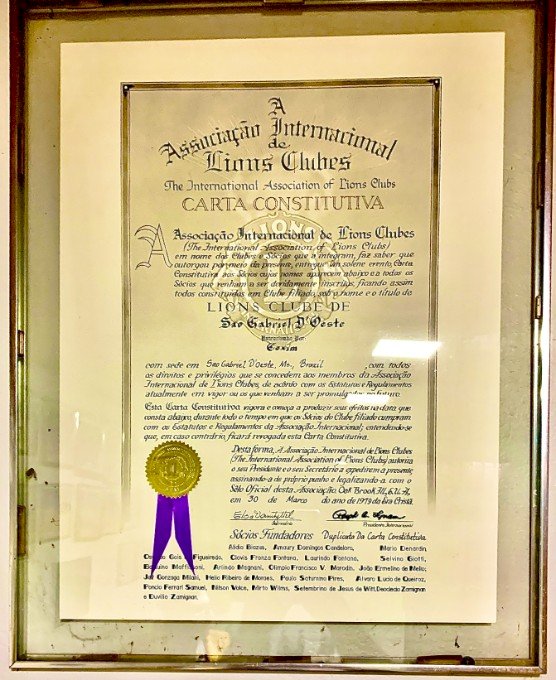 A
Associação Internacional
de
Lions Clubes
The International Association of Lions Clubs
CARTA CONSTITUTIVA
A Associação Internacional de Lions Clubes
(The International Association of Lions Clubs)
em nome dos Clubes e Sócios que a integram, faz saber que
outorgou por meio da presente, entregue em solene evento, Carta
Constitutiva aos Sócios cujos nomes aparecem abaixo e a todos os
Sócios que venham a ser devidamente inscritos, ficando assim
todos constituídos em Clube filiado, sob o nome e o título de
LIONS CLUBE DE
São Gabriel D'Oeste
Patrocinado Por:
Coxim
com sede em São Gabriel D'Oeste, Ms, Brasil, com todos
os direitos e privilégios que se concedem aos membros da Associação
Internacional de Lions Clubes, de acôrdo com os Estatutos e Regulamentos
atualmente em vigor ou os que venham a ser promulgados no futuro.
Esta Carta Constitutiva vigora e começa a produzir seus efeitos na data que
consta abaixo, durante todo o tempo em que os Sócios do Clube filiado cumpram
com os Estatutos e Regulamentos da Associação Internacional; entendendo-se
que, em caso contrário, ficará revogada esta Carta Constitutiva.
Desta forma, A Associação Internacional de Lions Clubes
(The International Association of Lions Clubs) autoriza
o seu Presidente e o seu Secretário a expedirem a presente,
assinando-a de próprio punho e legalizando-a com o
Sêlo Oficial desta Associação, Oak Brook, Ill., E.U.A.,
em 30 de Março do ano de 1979 da Era Cristã.
Secretário
Presidente Internacional
Sócios Fundadores Duplicada Da Carta Constitutiva
Alcio Biazus, Amaury Domingos Cordeiro, Mario Denardin,
Gois Figueiredo, Clovis Franzo Fontana, Laurindo Fontana, Selvino Giotti,
Balduino Maffissoni, Arlindo Magnani, Olimpio Francisco V. Marodin, João Ermelino de Mello,
Jair Gonzaga Milani, Helio Ribeiro de Moraes, Paulo Saturnino Pires, Alvaro Lucio de Queiroz,
Poncio Ferrari Samuel, Nilson Voico, Mirto Wilms, Setembrino de Jesus de Witt, Deoclecio Zamignan
e Duvilio Zamignan.